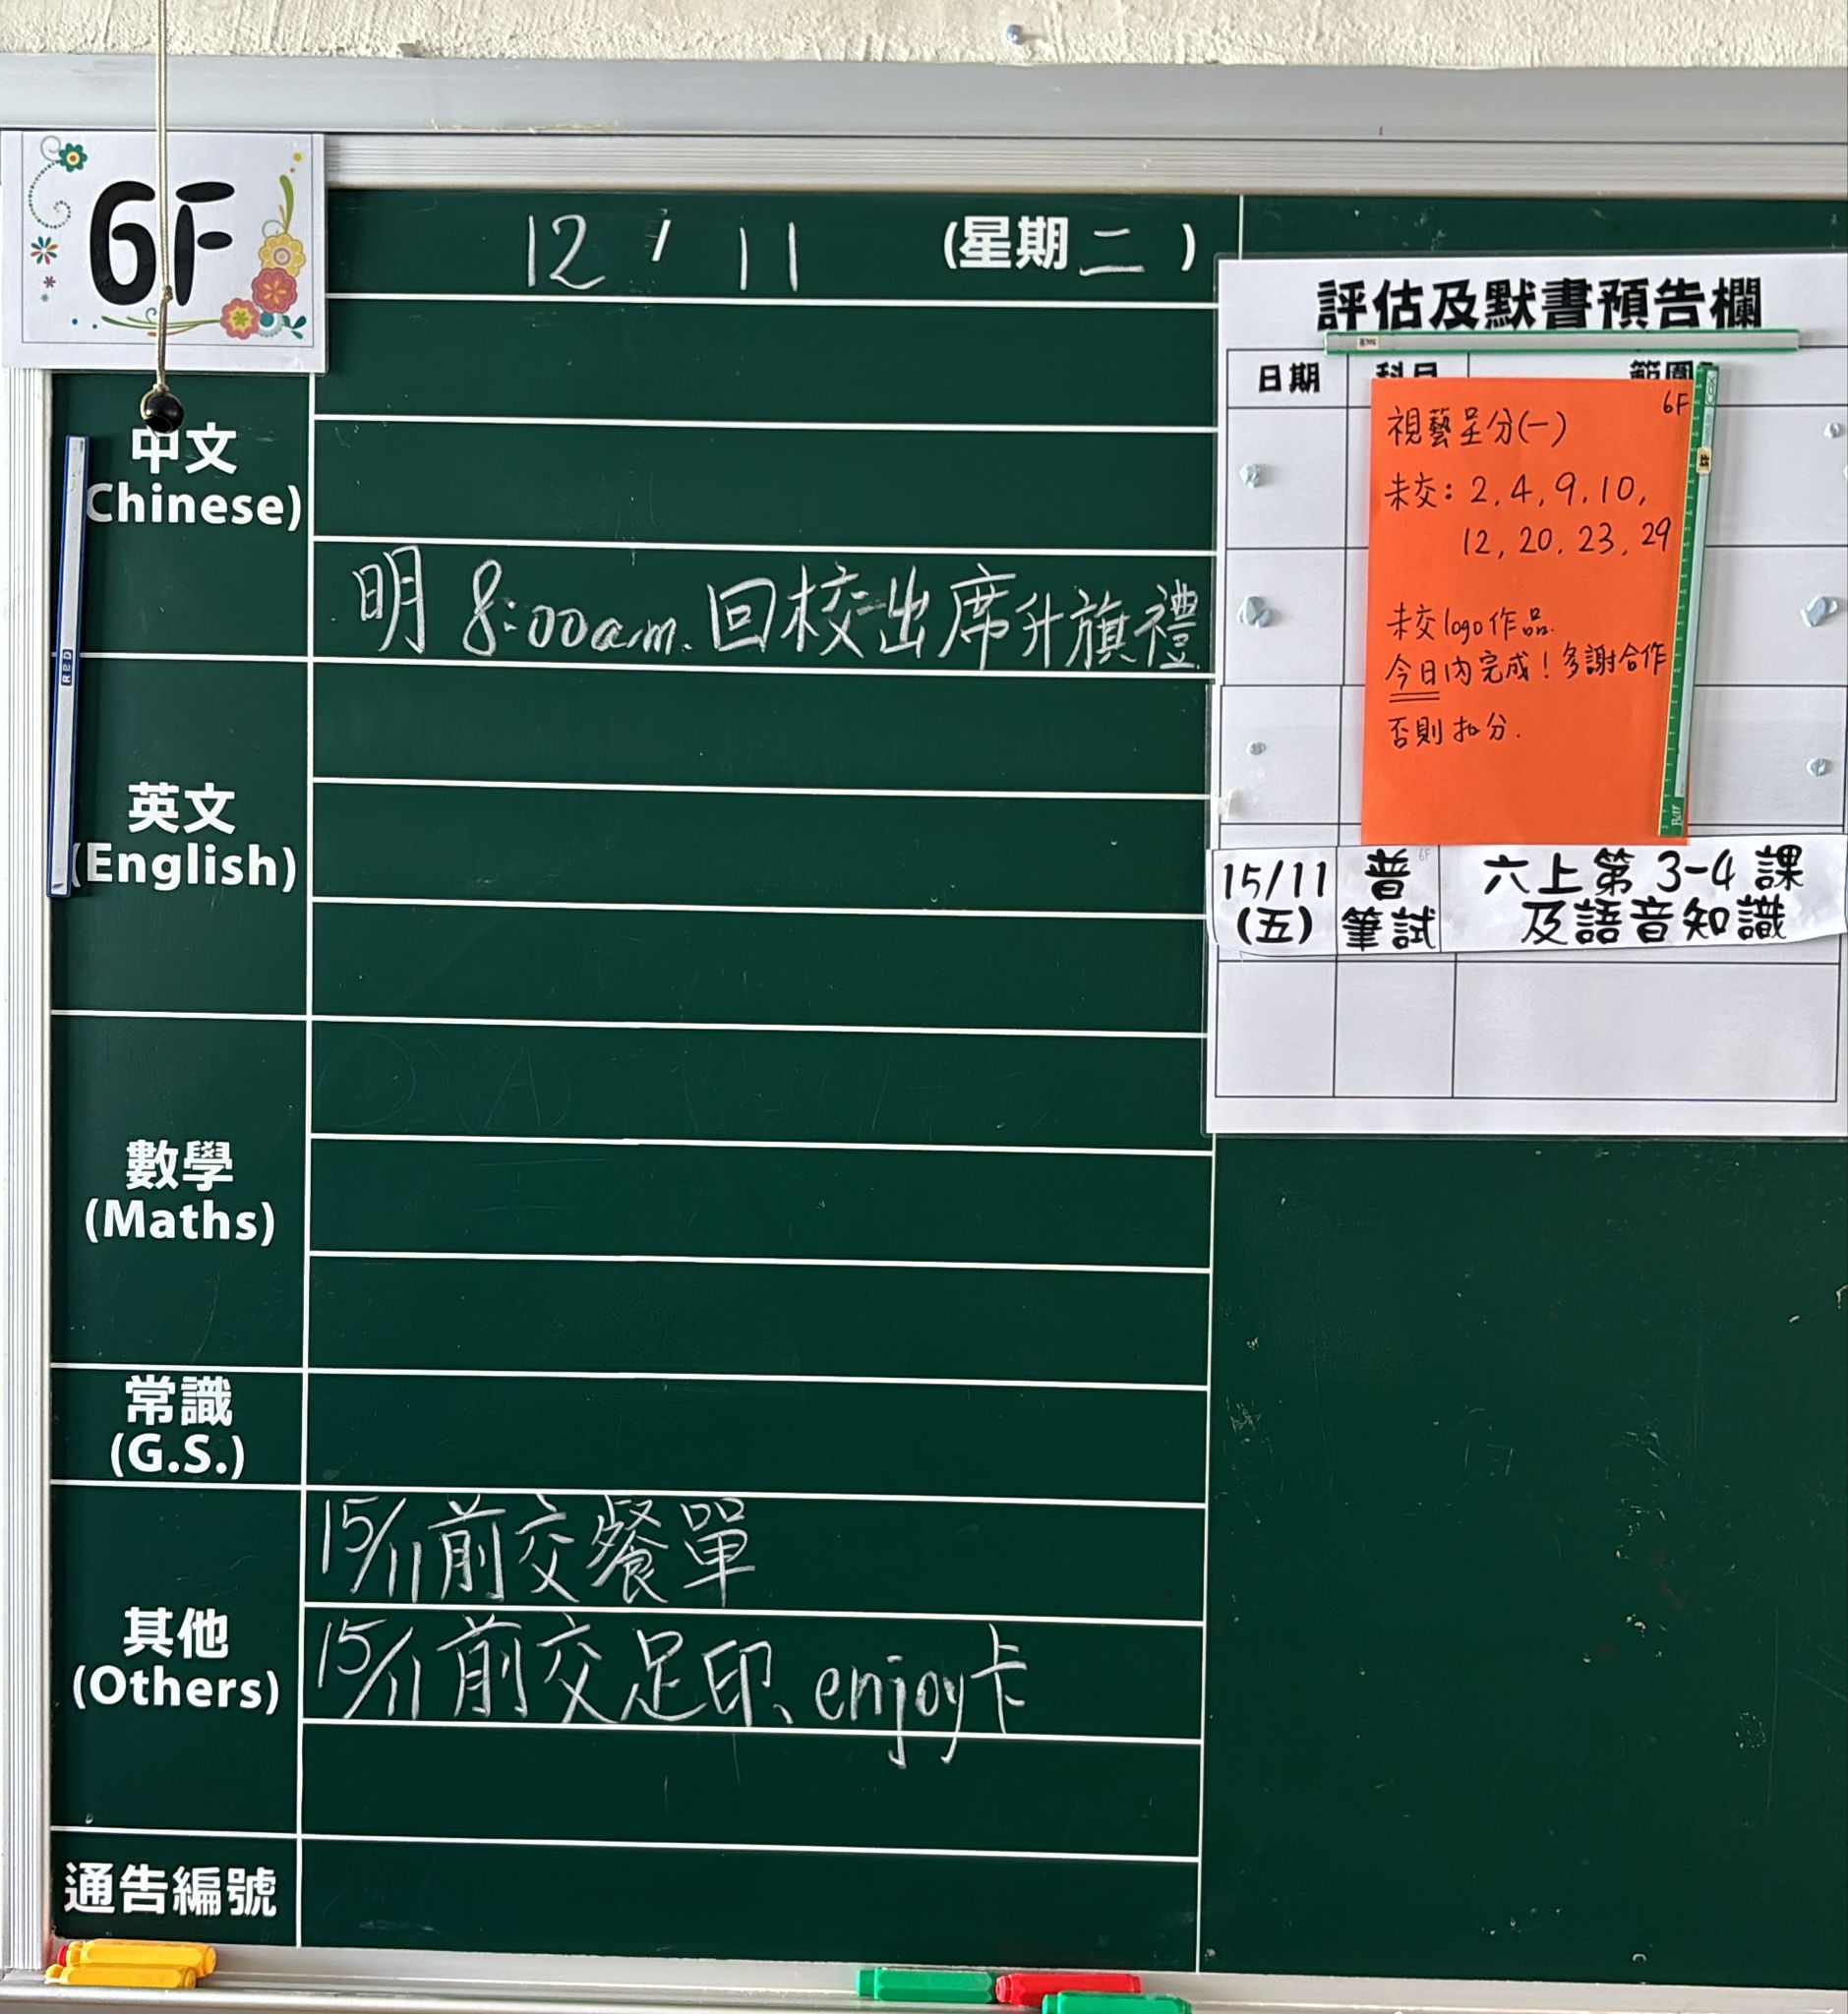 6F
12 / 11 (星期二)
中文
Chinese)
明 8:00a.m. 回校出席升旗禮
英文
(English)
數學
(Maths)
常識
(G.S.)
其他
(Others)
15/11前交餐單
15/11前交足印、enjoy卡
通告編號
評估及默書預告欄
日期 科目 範圍
6F
視藝呈分(一)
未交: 2, 4, 9, 10,
12, 20, 23, 29
未交logo作品.
今日內完成! 多謝合作
否則扣分.
15/11 普 六上第 3-4 課
(五) 筆試 及語音知識
6F